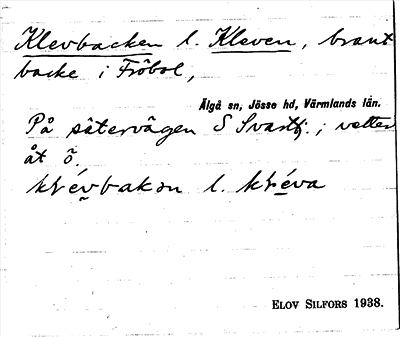 Klevbacken l. Kleven, brant
backe i Fröbol,
Älgå sn, Jösse hd, Värmlands län.
På sätervägen S Svartj.; vetter
åt ö.
klévbakən l. kléva
ELOV SILFORS 1938.